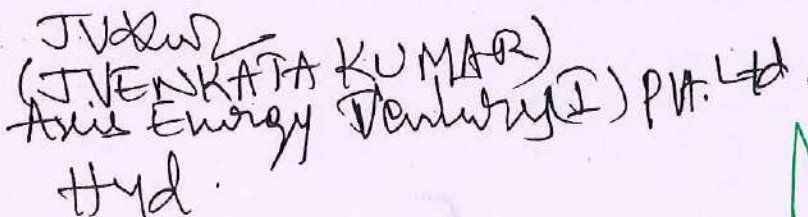 (J VENKATA KUMAR)
Axis Energy Ventures(I) Pvt. Ltd.
Hyd.